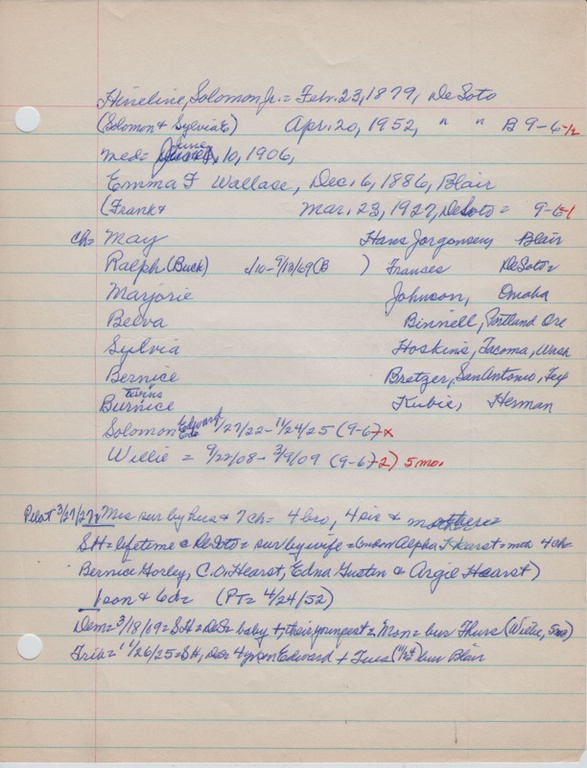 Hineline, Solomon Jr. = Feb. 23, 1879, DeSoto
(Solomon & Sylvia E) Apr. 20, 1952, " " B 9-6-1/2
med = June 10, 1906,
Emma F Wallace, Dec. 6, 1886, Blair
(Frank & Mar. 23, 1927, DeSoto = 9-6-1
ch = May Hans Jorgensen, Blair
Ralph (Buck) -9/13/69 (B ) Franses DeSoto =
Marjorie Johnson, Omaha
Belva Binnell, Portland Ore
Sylvia Hoskins, Tacoma, Wash
Bernice Bretzer, San Antonio, Tex
twins
Burnice Kubie, Herman
Solomon Edward 1/27/22 - 11/24/25 (9-6-x
Willie = 9/22/08 - 3/9/09 (9-6-2) 5 mo.
Pilot 3/27/27 = Mrs sur by hus & 7 ch = 4 bro, 4 sis & mother =
SH = lifetime DeSoto = sur by wife = Alpha Hearst = 4 ch
Bernice Gorley, C.O. Hearst, Edna Gustin & Argie Hearst)
1 son & 6 (PT = 4/24/52)
Dem = 3/18/09 = SH = DeS = baby + their youngest = Mon = bur Thurs (Willie, 5 mo)
Trib = 11/26/25 = SH, Des = 4 yr son Edward + Tues (11/24 bur Blair